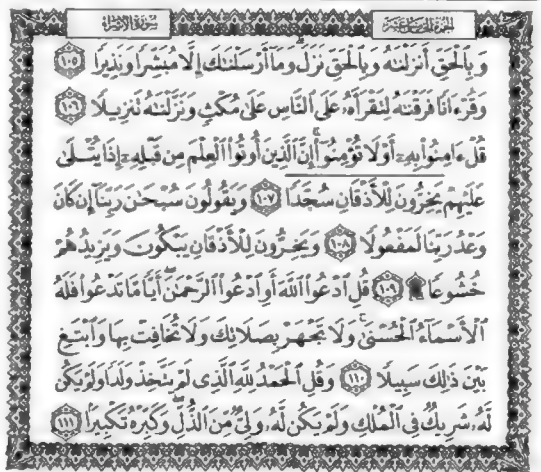 الجزء الخامس عشر
سورة الإسراء
وَبِٱلْحَقِّ أَنزَلْنَٰهُ وَبِٱلْحَقِّ نَزَلَ ۗ وَمَآ أَرْسَلْنَٰكَ إِلَّا مُبَشِّرًا وَنَذِيرًا ١٠٥
وَقُرْءَانًا فَرَقْنَٰهُ لِتَقْرَأَهُۥ عَلَى ٱلنَّاسِ عَلَىٰ مُكْثٍ وَنَزَّلْنَٰهُ تَنزِيلًا ١٠٦
قُلْ ءَامِنُوا۟ بِهِۦٓ أَوْ لَا تُؤْمِنُوٓا۟ ۚ إِنَّ ٱلَّذِينَ أُوتُوا۟ ٱلْعِلْمَ مِن قَبْلِهِۦٓ إِذَا يُتْلَىٰ
عَلَيْهِمْ يَخِرُّونَ لِلْأَذْقَانِ سُجَّدًا ١٠٧ وَيَقُولُونَ سُبْحَٰنَ رَبِّنَآ إِن كَانَ
وَعْدُ رَبِّنَا لَمَفْعُولًا ١٠٨ وَيَخِرُّونَ لِلْأَذْقَانِ يَبْكُونَ وَيَزِيدُهُمْ
خُشُوعًا ۩ ١٠٩ قُلِ ٱدْعُوا۟ ٱللَّهَ أَوِ ٱدْعُوا۟ ٱلرَّحْمَٰنَ ۖ أَيًّا مَّا تَدْعُوا۟ فَلَهُ
ٱلْأَسْمَآءُ ٱلْحُسْنَىٰ ۚ وَلَا تَجْهَرْ بِصَلَاتِكَ وَلَا تُخَافِتْ بِهَا وَٱبْتَغِ
بَيْنَ ذَٰلِكَ سَبِيلًا ١١٠ وَقُلِ ٱلْحَمْدُ لِلَّهِ ٱلَّذِى لَمْ يَتَّخِذْ وَلَدًا وَلَمْ يَكُن
لَّهُۥ شَرِيكٌ فِى ٱلْمُلْكِ وَلَمْ يَكُن لَّهُۥ وَلِىٌّ مِّنَ ٱلذُّلِّ ۖ وَكَبِّرْهُ تَكْبِيرًۢا ١١١